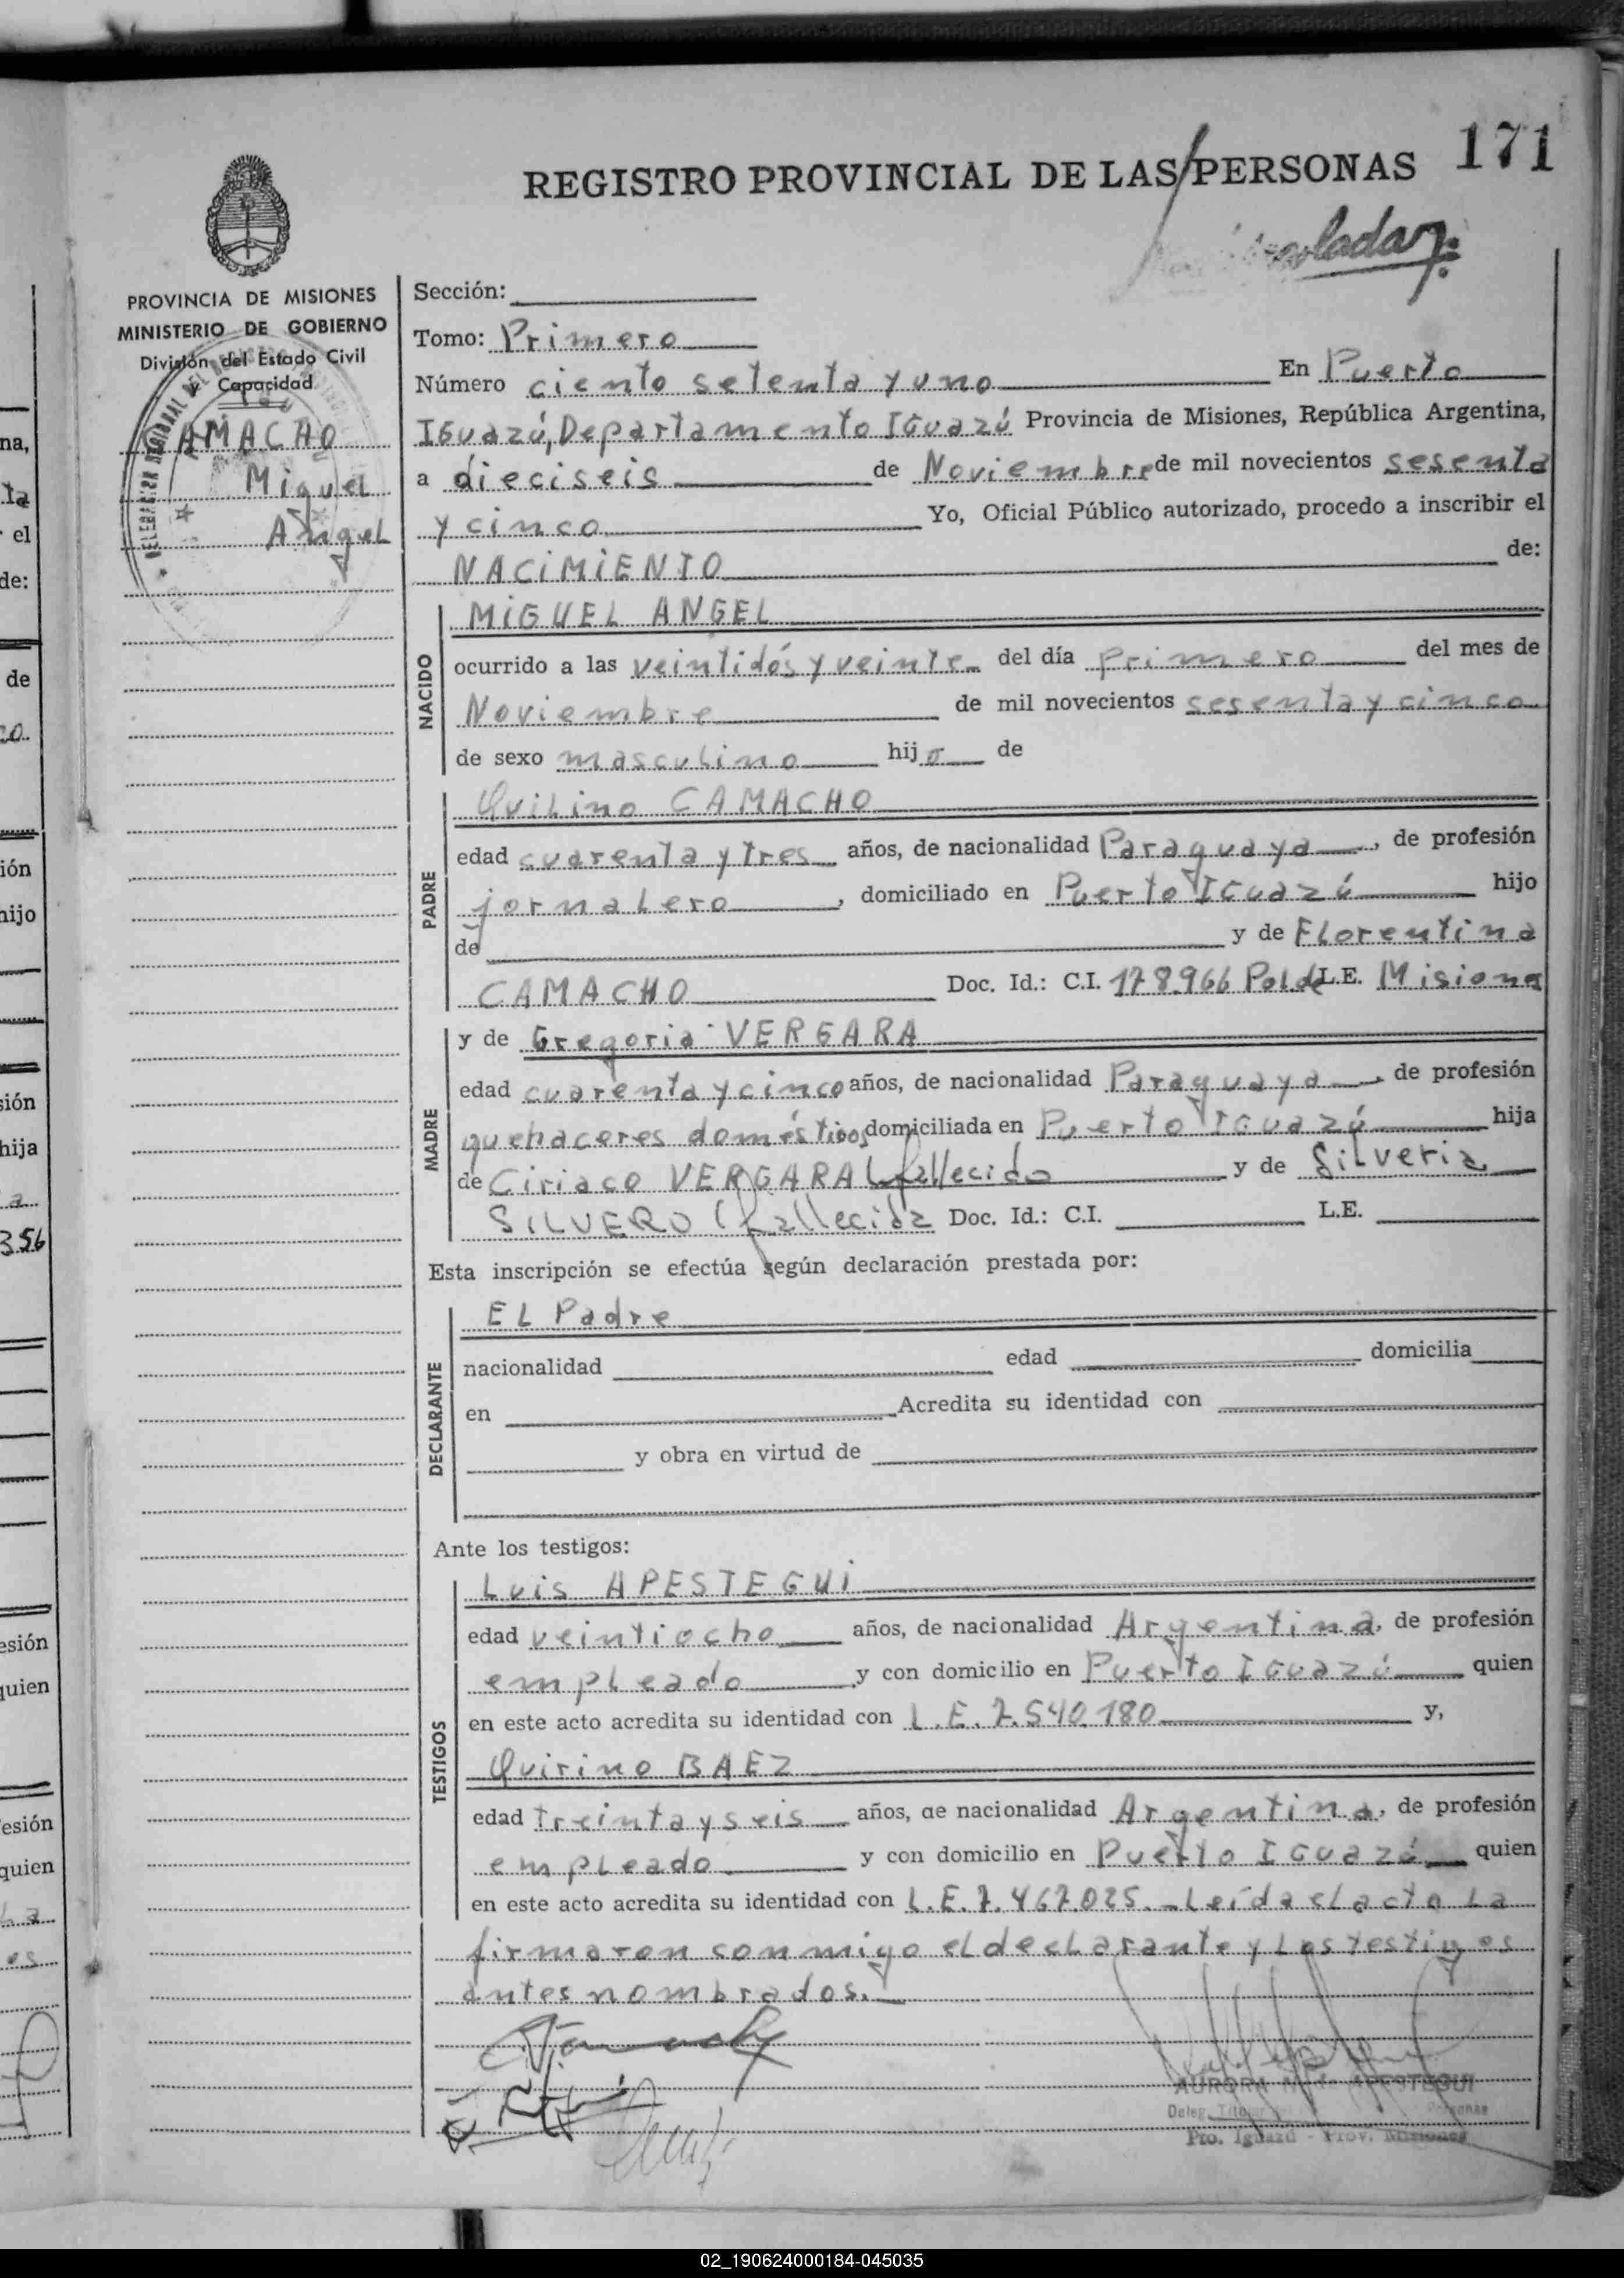 171
REGISTRO PROVINCIAL DE LAS PERSONAS
PROVINCIA DE MISIONES
MINISTERIO DE GOBIERNO
División del Estado Civil
y Capacidad
CAMACHO
Miguel
Angel
Sección:
Tomo: Primero
Número ciento setenta y uno En Puerto
IGuazú, Departamento IGuazú Provincia de Misiones, República Argentina,
a dieciseis de Noviembre de mil novecientos sesenta
y cinco Yo, Oficial Público autorizado, procedo a inscribir el
NACIMIENTO de:
NACIDO
MIGUEL ANGEL
ocurrido a las veintidós y veinte del día primero del mes de
Noviembre de mil novecientos sesenta y cinco
de sexo masculino hijo de
PADRE
Quilino CAMACHO
edad cuarenta y tres años, de nacionalidad Paraguaya, de profesión
jornalero, domiciliado en Puerto IGuazú hijo
de y de Florentina
CAMACHO Doc. Id.: C.I. 178.966 Pol de L.E. Misiones
MADRE
y de Gregoria VERGARA
edad cuarenta y cinco años, de nacionalidad Paraguaya, de profesión
quehaceres domésticos domiciliada en Puerto IGuazú hija
de Ciriaco VERGARA (fallecido y de Silveria
SILVERO (fallecida Doc. Id.: C.I. L.E.
Esta inscripción se efectúa según declaración prestada por:
DECLARANTE
EL Padre
nacionalidad edad domicilia
en Acredita su identidad con
y obra en virtud de
Ante los testigos:
TESTIGOS
Luis APESTEGUI
edad veintiocho años, de nacionalidad Argentina, de profesión
empleado y con domicilio en Puerto IGuazú quien
en este acto acredita su identidad con L.E. 7.540.180 y,
Quirino BAEZ
edad treinta y seis años, de nacionalidad Argentina, de profesión
empleado y con domicilio en Puerto IGuazú quien
en este acto acredita su identidad con L.E. 7.467.025.- Leída el acta la
firmaron conmigo el declarante y los testigos
antes nombrados.
AURORA APESTEGUI
Pto. Iguazú - Prov. Misiones
02_190624000184-045035